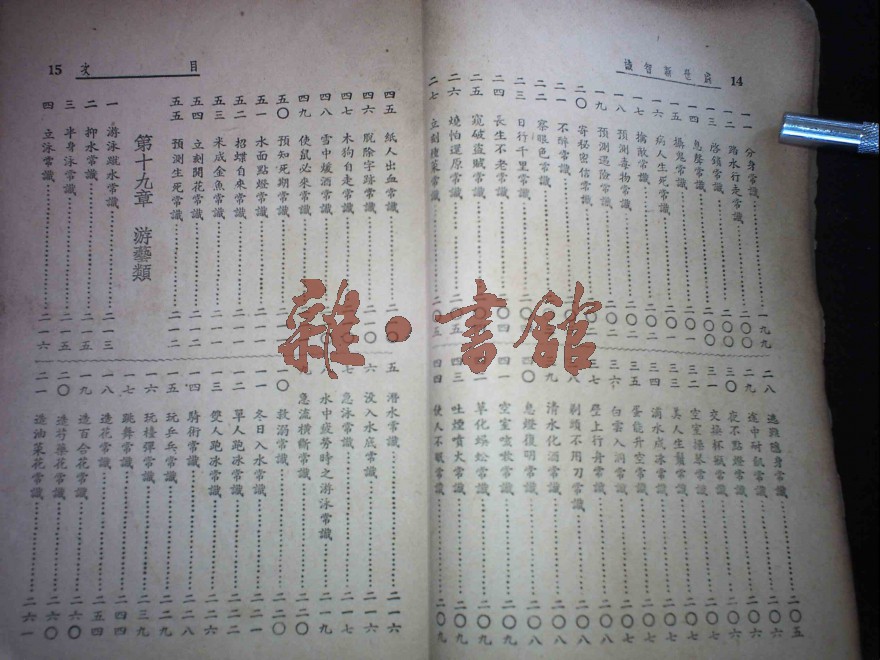 14
一一 分身常識 一九九
一二 踏水行走常識 二〇〇
一三 啓鎖常識 二〇〇
一四 息聲常識
一五 搗鬼常識
一六 病人生死常識
一七 擒敵常識
一八 預測毒物常識
一九 預測遇險常識
二〇 寄秘密信常識
二一 不醉常識
二二 察眼色常識
二三 日行千里常識
二四 長生不老常識
二五 窺破盜賊常識
二六 燒怕還原常識
二七 立刻種菜常識 二〇五
二八 逃難隨身常識 二〇五
二九 途中耐飢常識 二〇六
三〇 夜不點燈常識 二〇六
三一 交換杯瓶常識 二〇六
三二 空室操琴常識 二〇七
三三 美人生鬚常識 二〇七
三四 滴水成冰常識 二〇七
三五 蛋能升空常識 二〇七
三六 白雲入洞常識 二〇七
三七 壁上行舟常識 二〇八
剃頭不用刀常識 二〇八
清水化酒常識 二〇八
四〇 息燈復明常識 二〇八
四一 草化蜈蚣常識 二〇九
空室嗅軟常識 二〇九
四三 吐煙噴火常識 二〇九
四四 使人不眠常識 二〇九
目 文 15
四五 紙人出血常識
四六 脫除字跡常識
四七 木狗自走常識
四八 雪中煖酒常識
四九 使鼠必來常識
五〇 預知死期常識 二一一
五一 水面點燈常識 二一一
五二 招蝶自來常識 二一一
五三 米成金魚常識 二一一
五四 立刻開花常識 二一二
五五 預測生死常識 二一二
第十九章 游藝類
一 游泳蹴水常識 二一三
二 抑水常識 二一五
三 半身泳常識 二一五
四 立泳常識 二一六
五 潛水常識 二一六
六 沒入水底常識 二一六
七 急泳常識 二一七
水中疲勞時之游泳常識 二一九
急流橫斷常識 二二〇
一〇 救溺常識 二二〇
一一 冬日入水常識 二二一
一二 單人跑冰常識 二二二
一三 雙人跑冰常識 二二六
一四 騎術常識 二二七
一五 玩乒乓常識 二二九
一六 玩檯彈常識 二三九
一七 跳舞常識 二四四
一八 造花常識 二五四
一九 造百合花常識 二六〇
二〇 造芍藥花常識 二六〇
二一 造油菜花常識 二六一
雜·書館